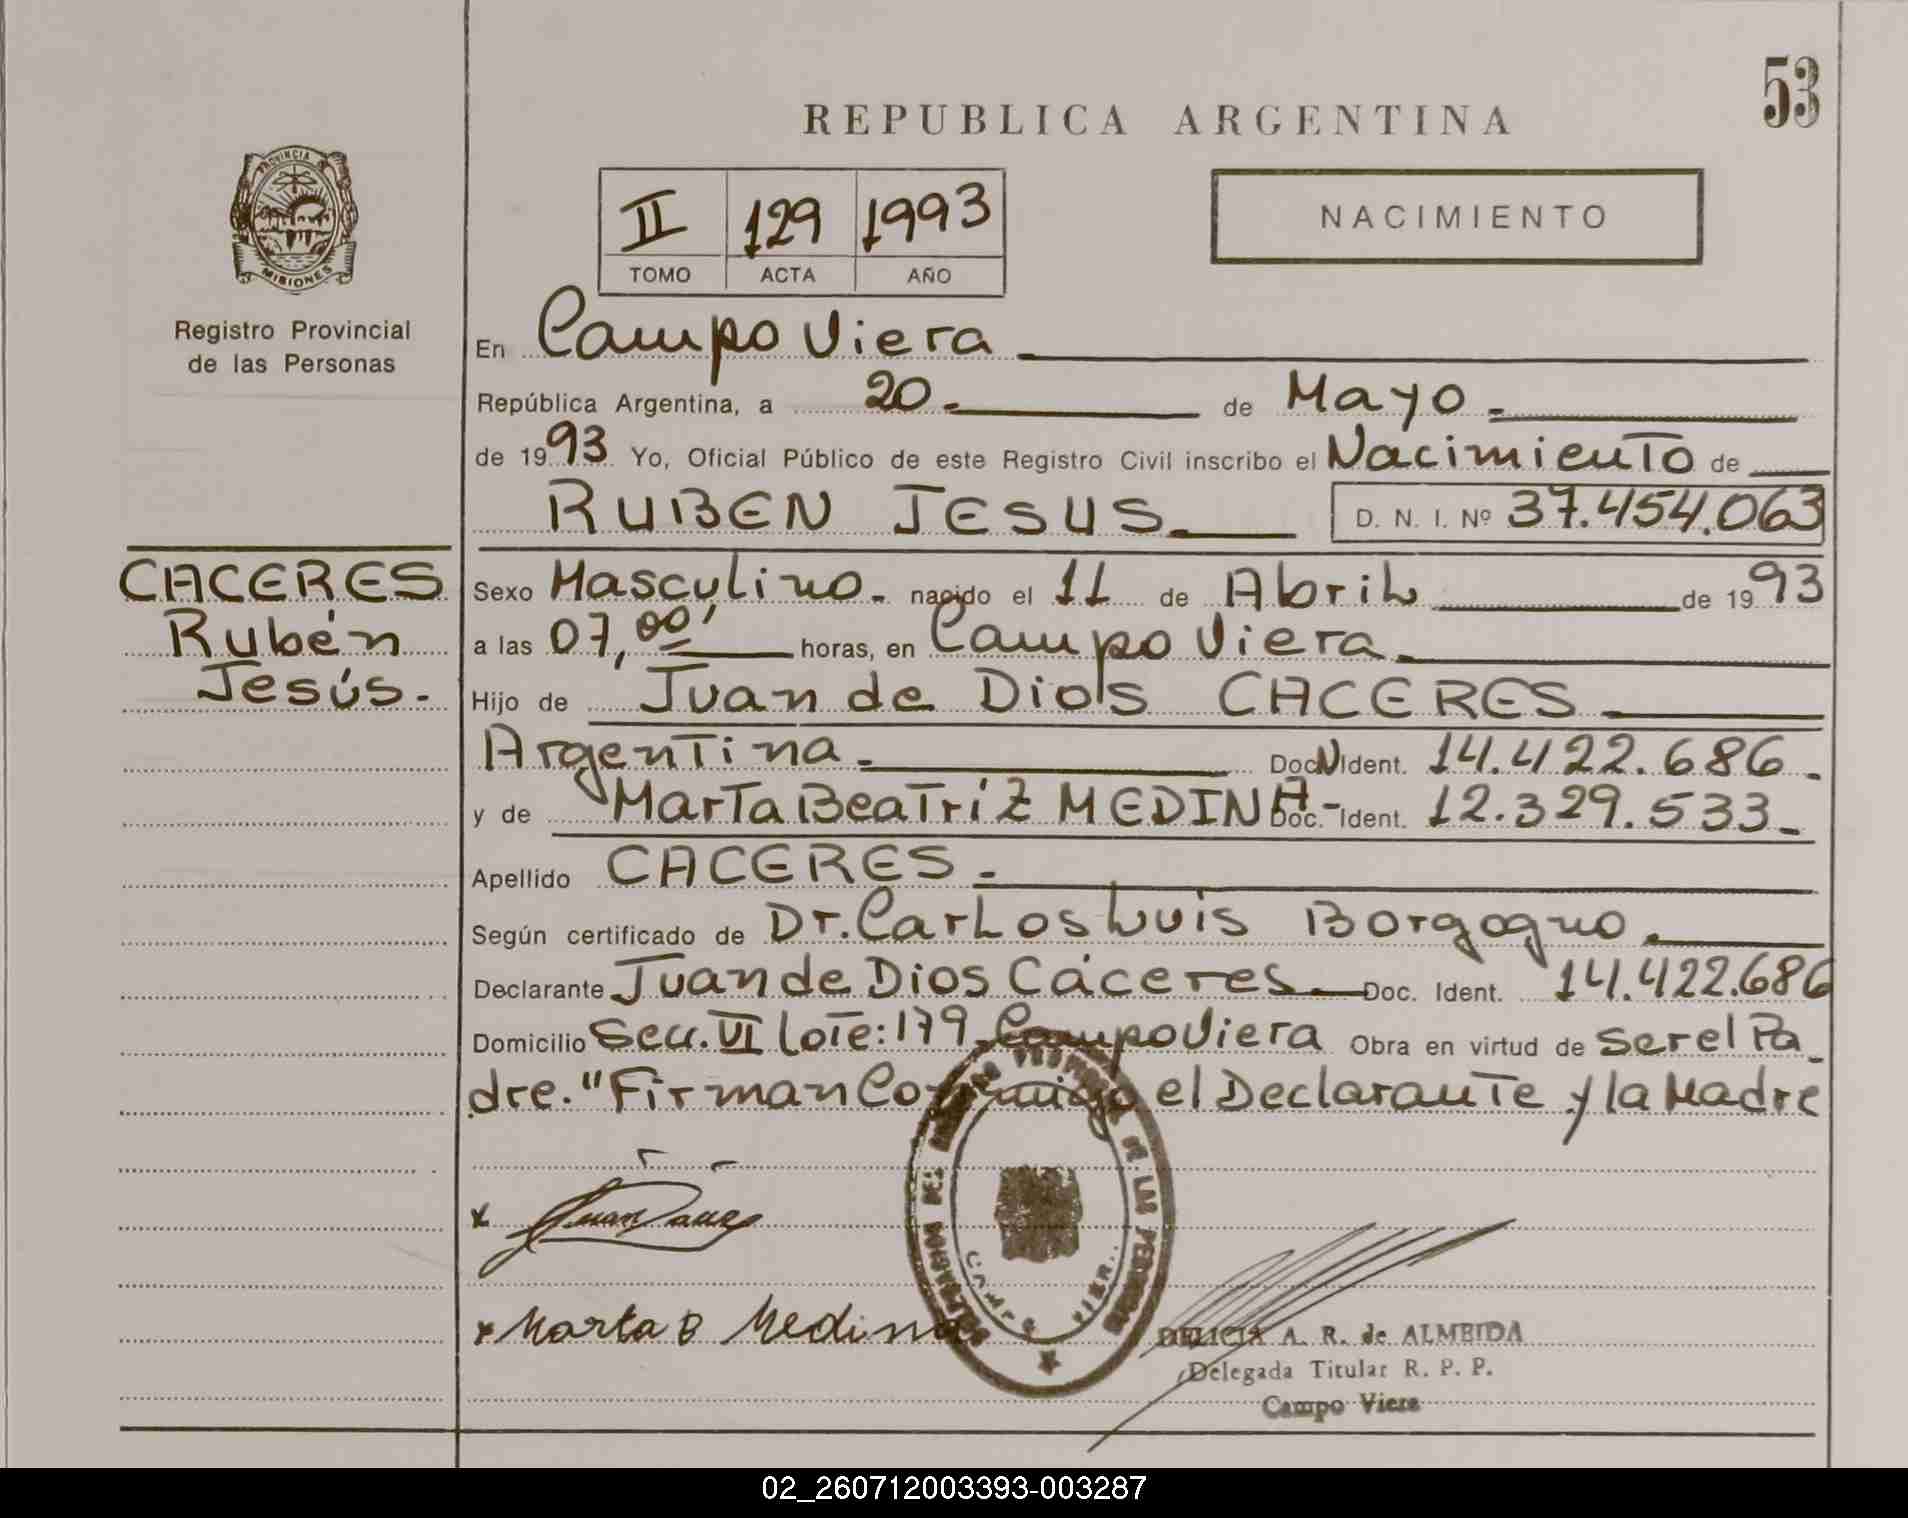 53
REPUBLICA ARGENTINA
PROVINCIA
MISIONES
Registro Provincial
de las Personas
II 129 1993
TOMO ACTA AÑO
NACIMIENTO
En Campo Viera
República Argentina, a 20 de Mayo
de 1993 Yo, Oficial Público de este Registro Civil inscribo el Nacimiento de
RUBEN JESUS D. N. I. Nº 37.454.063
CACERES
Rubén
Jesús.
Sexo Masculino. nacido el 11 de Abril de 1993
a las 07,00' horas, en Campo Viera
Hijo de Juan de Dios CACERES
Argentina. Doc. N Ident. 14.422.686.
y de Marta Beatriz MEDINA.- Doc. Ident. 12.329.533
Apellido CACERES
Según certificado de Dr. Carlos Luis Borgogno.
Declarante Juan de Dios Cáceres. Doc. Ident. 14.422.686
Domicilio Secc. VI lote: 179 Campo Viera Obra en virtud de ser el Pa_
dre. "Firman Conmigo el Declarante y la Madre
x Juan
x Marta B Medina
DE LAS PERSONAS
DELICIA A. R. de ALMEIDA
Delegada Titular R. P. P.
Campo Viera
02_260712003393-003287